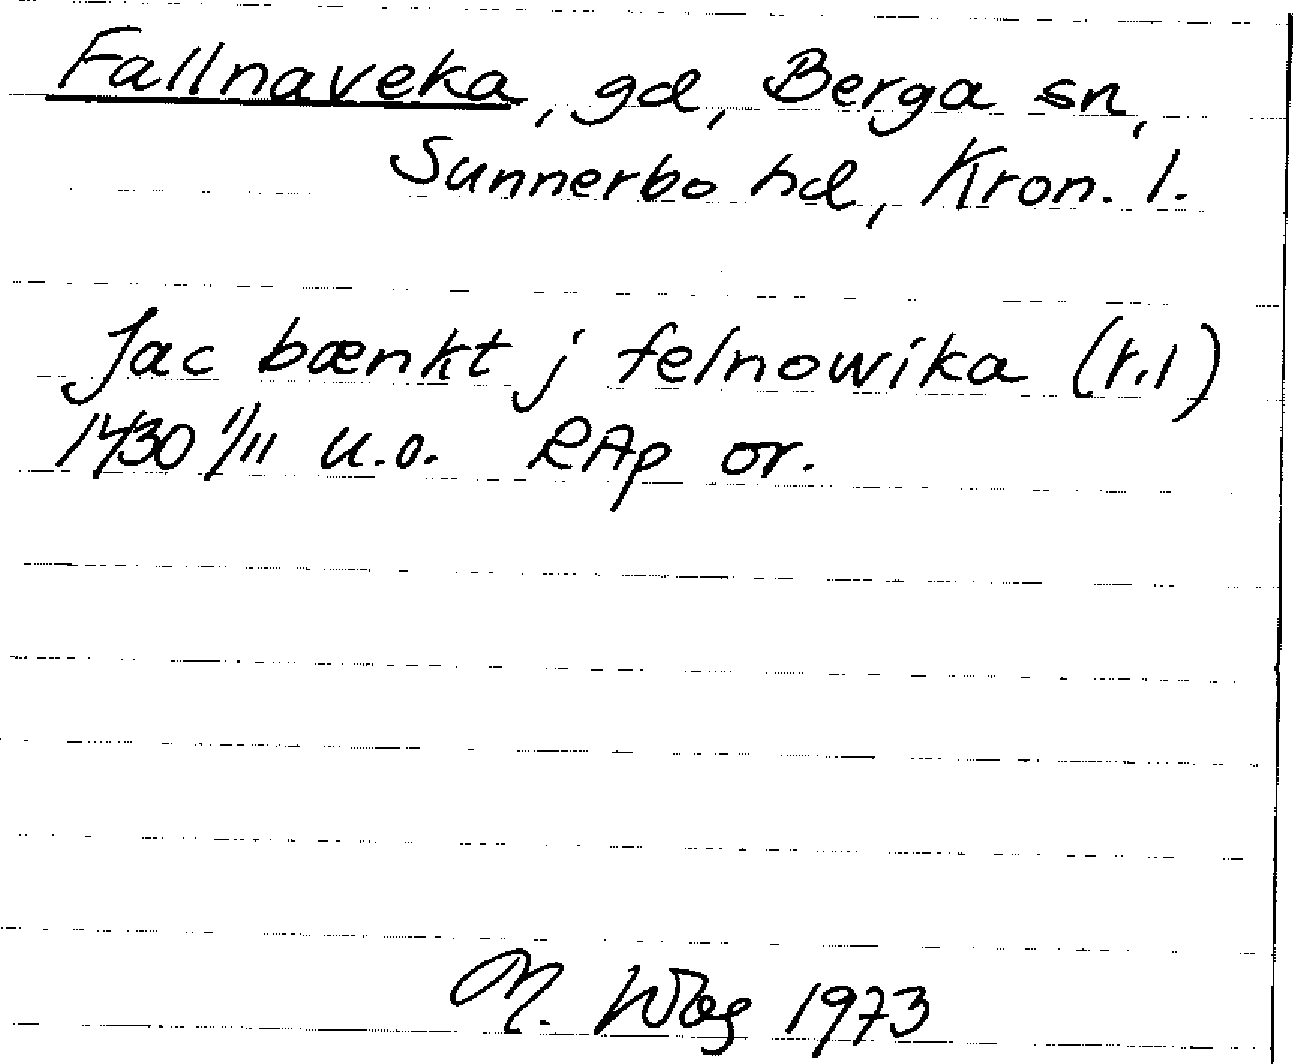 Fallnaveka, gd, Berga sn,
Sunnerbo hd, Kron. l.
Jac bænkt j felnowika (t.l)
1430 1/11 u.o. RAp or.
M. Wåg 1973